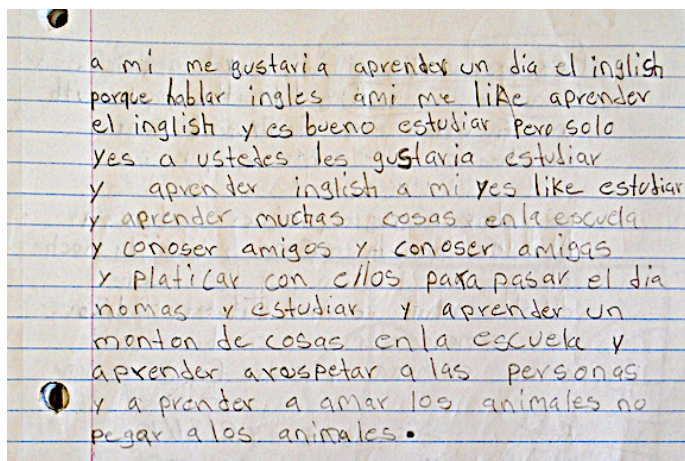 a mi me gustaria aprender un dia el inglish
porque hablar ingles ami me like aprender
el inglish y es bueno estudiar pero solo
yes a ustedes les gustaria estudiar
y aprender inglish a mi yes like estudiar
y aprender muchas cosas en la escuela
y conoser amigos y conoser amigas
y platicar con ellos para pasar el dia
nomas y estudiar y aprender un
monton de cosas en la escuela y
aprender arespetar a las personas
y a prender a amar los animales no
pegar a los animales.